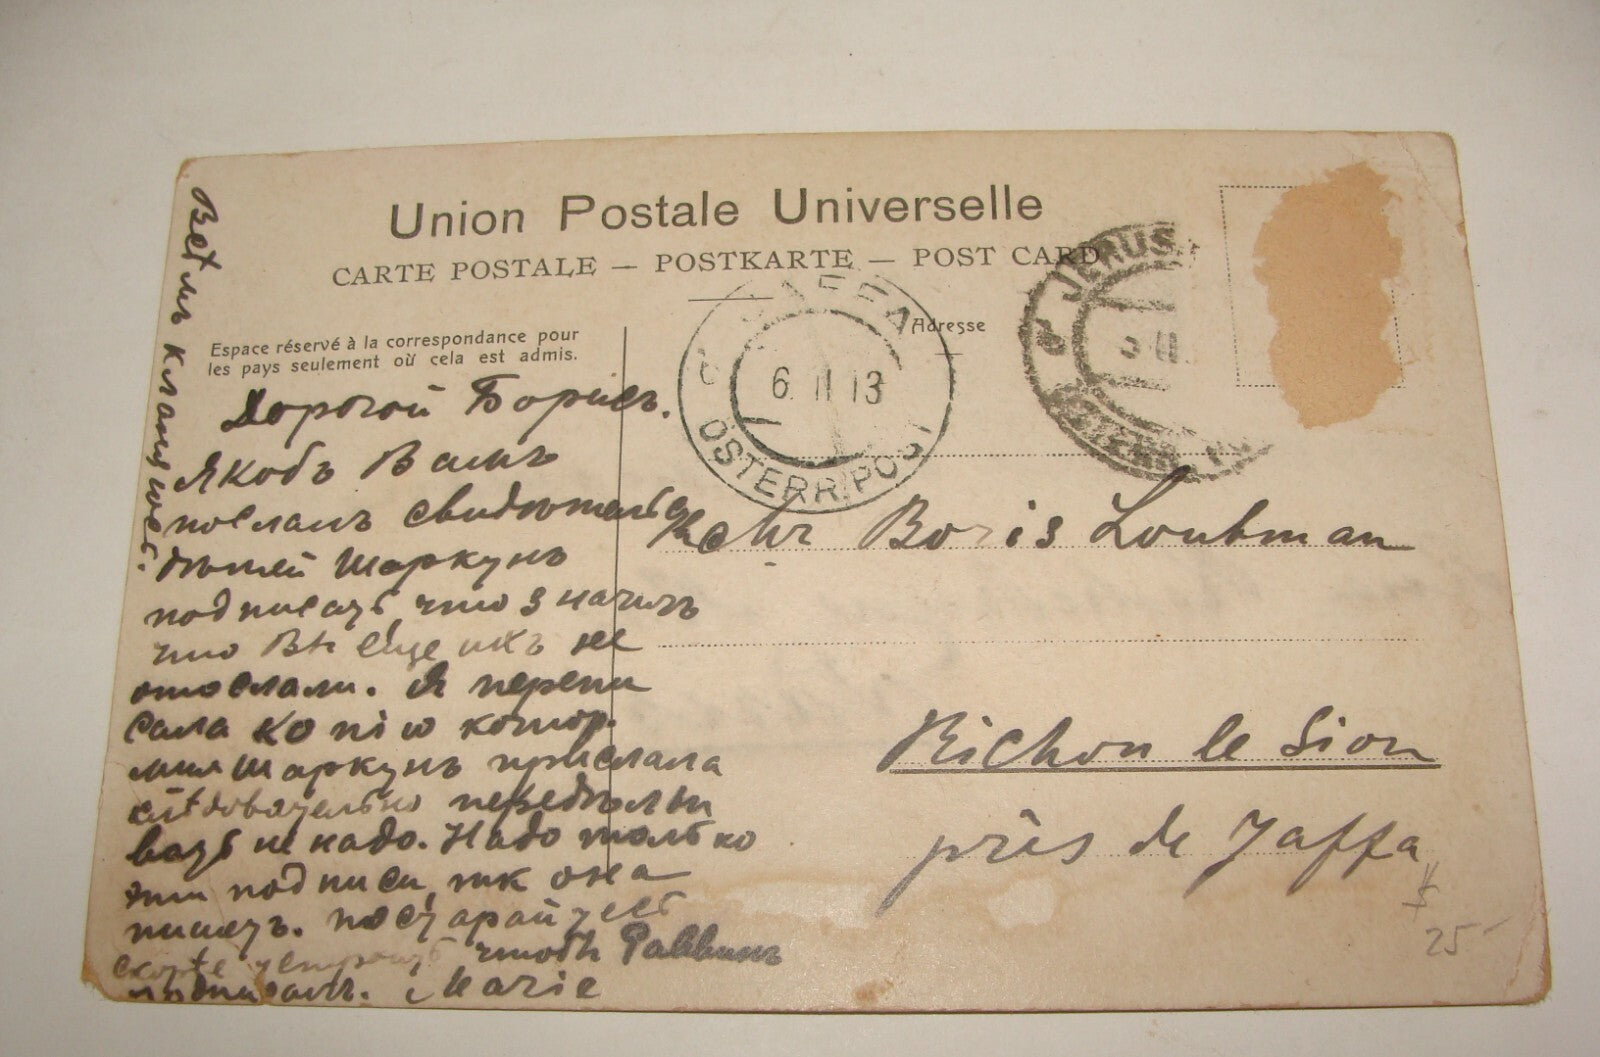 Union Postale Universelle
CARTE POSTALE — POSTKARTE — POST CARD
Espace réservé à la correspondance pour
les pays seulement où cela est admis.
Adresse
JAFFA
6. II 13
ÖSTERR. POST
JERUS
II
Всѣмъ кланяюсь.
Дорогой Борисъ.
Якобъ Вамъ
послалъ свидѣтельс
Шаркунъ
подписать что значитъ
что Вы еще ихъ не
отослали. Я перепи
сала копію котор.
мнѣ Шаркунъ прислала
слѣдовательно передѣлы
вать не надо. Надо только
эти подписи, как она
пишетъ. Постарайтесь
скорѣе устроить чтобы Раввинъ
подписалъ. Marie
Herr Boris Loubman
Richon le Sion
près de Jaffa
$
25